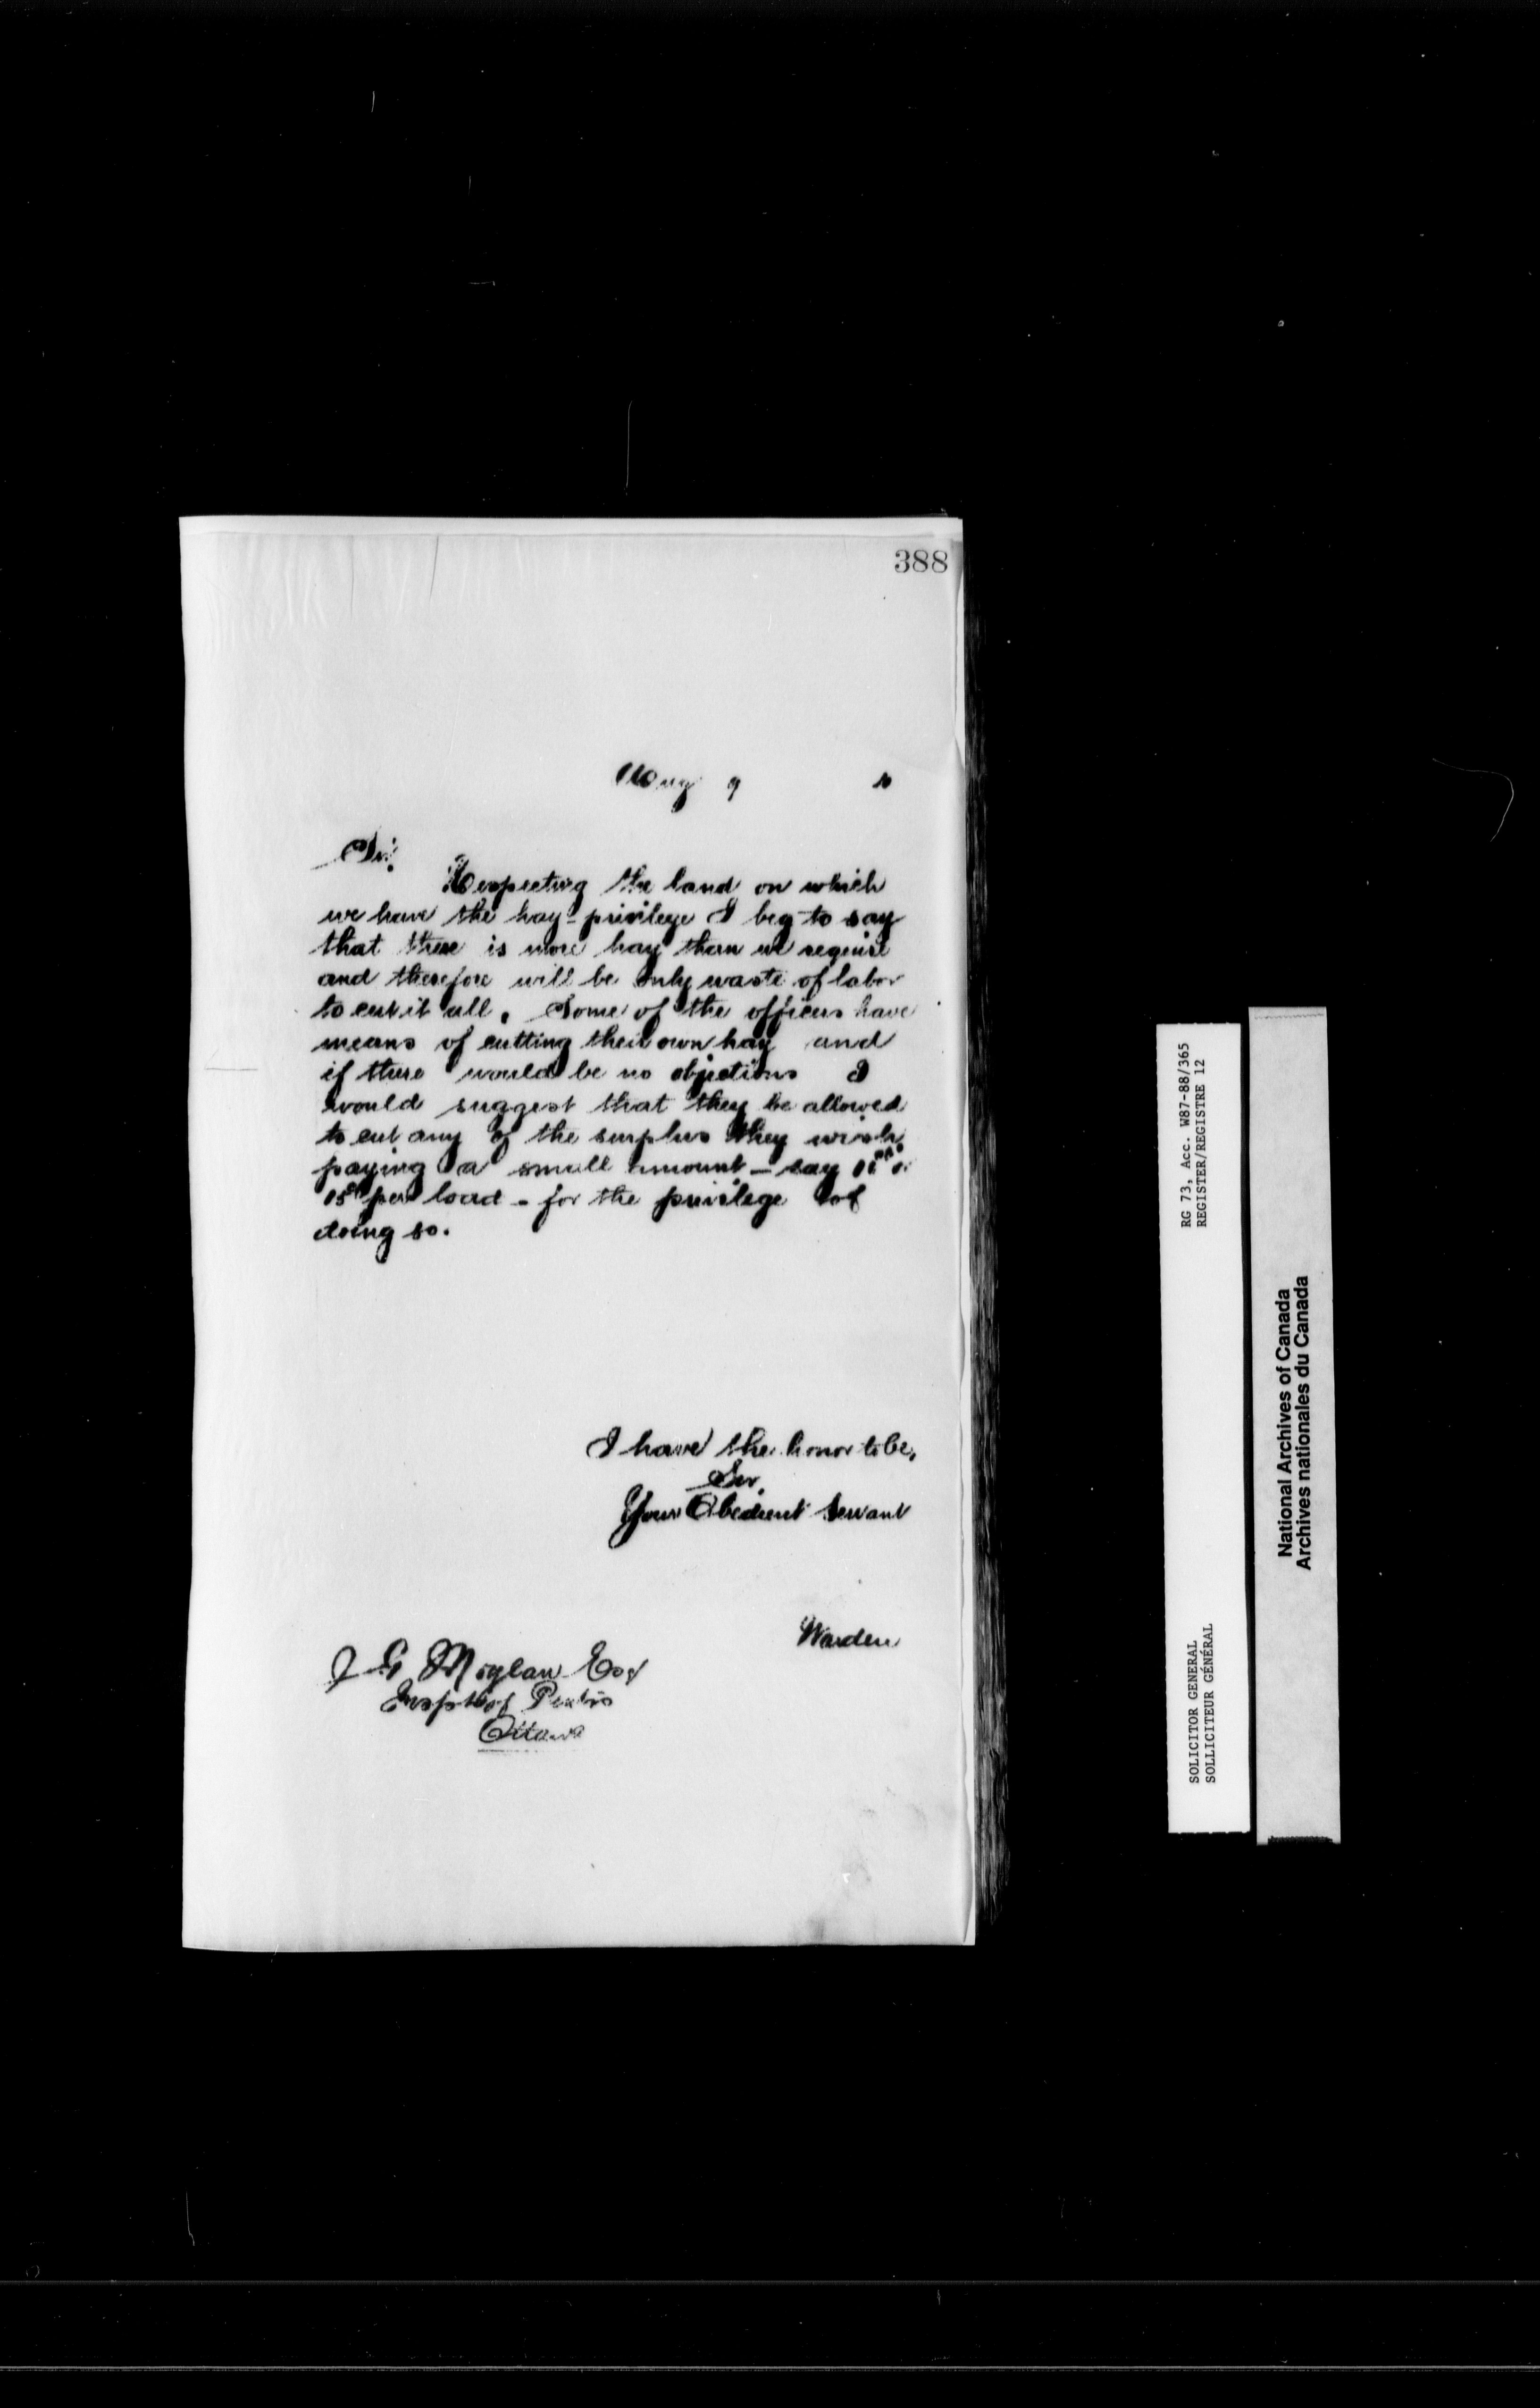 388
Aug 9
Sir.
Respecting the land on which
we have the hay-privilege I beg to say
that there is more hay than we require
and therefore will be only waste of labor
to cut it all. Some of the officers have
means of cutting their own hay and
if there would be no objections I
would suggest that they be allowed
to cut any of the surplus they wish
paying a small amount - say
15 per load - for the privilege of
doing so.
I have the honor to be,
Sir,
Your Obedient Servant
Warden
J G Moylan Esq
Inspt of Pentrs
Ottawa
RG 73, Acc. W87-88/365
REGISTER/REGISTRE 12
SOLICITOR GENERAL
SOLLICITEUR GÉNÉRAL
National Archives of Canada
Archives nationales du Canada